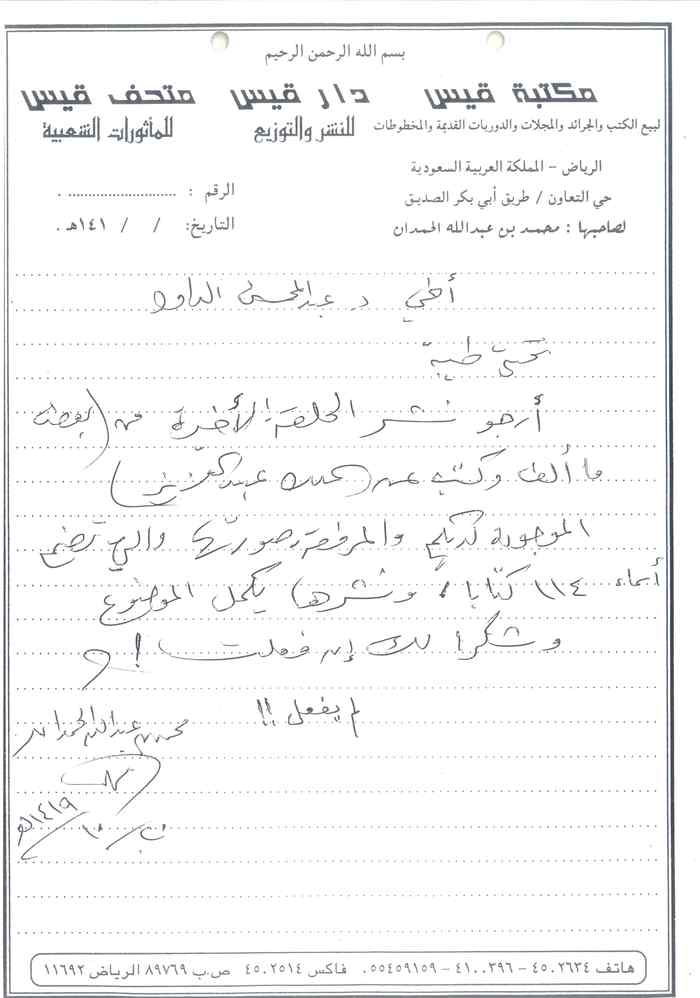 بسم الله الرحمن الرحيم
مكتبة قيس دار قيس متحف قيس
لبيع الكتب والجرائد والمجلات والدوريات القديمة والمخطوطات للنشر والتوزيع للمأثورات الشعبية
الرياض - المملكة العربية السعودية
حي التعاون / طريق أبي بكر الصديق الرقم : .......................... .
لصاحبها : محمد بن عبدالله الحمدان التاريخ: / / ١٤١هـ .
أخي د. عبدالمحسن الداود
تحية طيبة
أرجو نشر الحلقة الأخيرة من (بعض
ما ألف وكتب عن الملك عبدالعزيز)
الموجودة لديكم والمرفقة صورتها والتي تضم
أسماء ١١٤ كتابا، ونشرها يكمل الموضوع
وشكرا لك إن فعلت ! و
لم يفعل !!
محمد بن عبدالله الحمدان
١٠/ ١٤١٩هـ
هاتف ٤٥٠٢٦٣٤ - ٤١٠٠٣٩٦ - ٠٥٥٤٥٩١٥٩ فاكس ٤٥٠٢٥١٤ ص.ب ٨٩٧٦٩ الرياض ١١٦٩٢